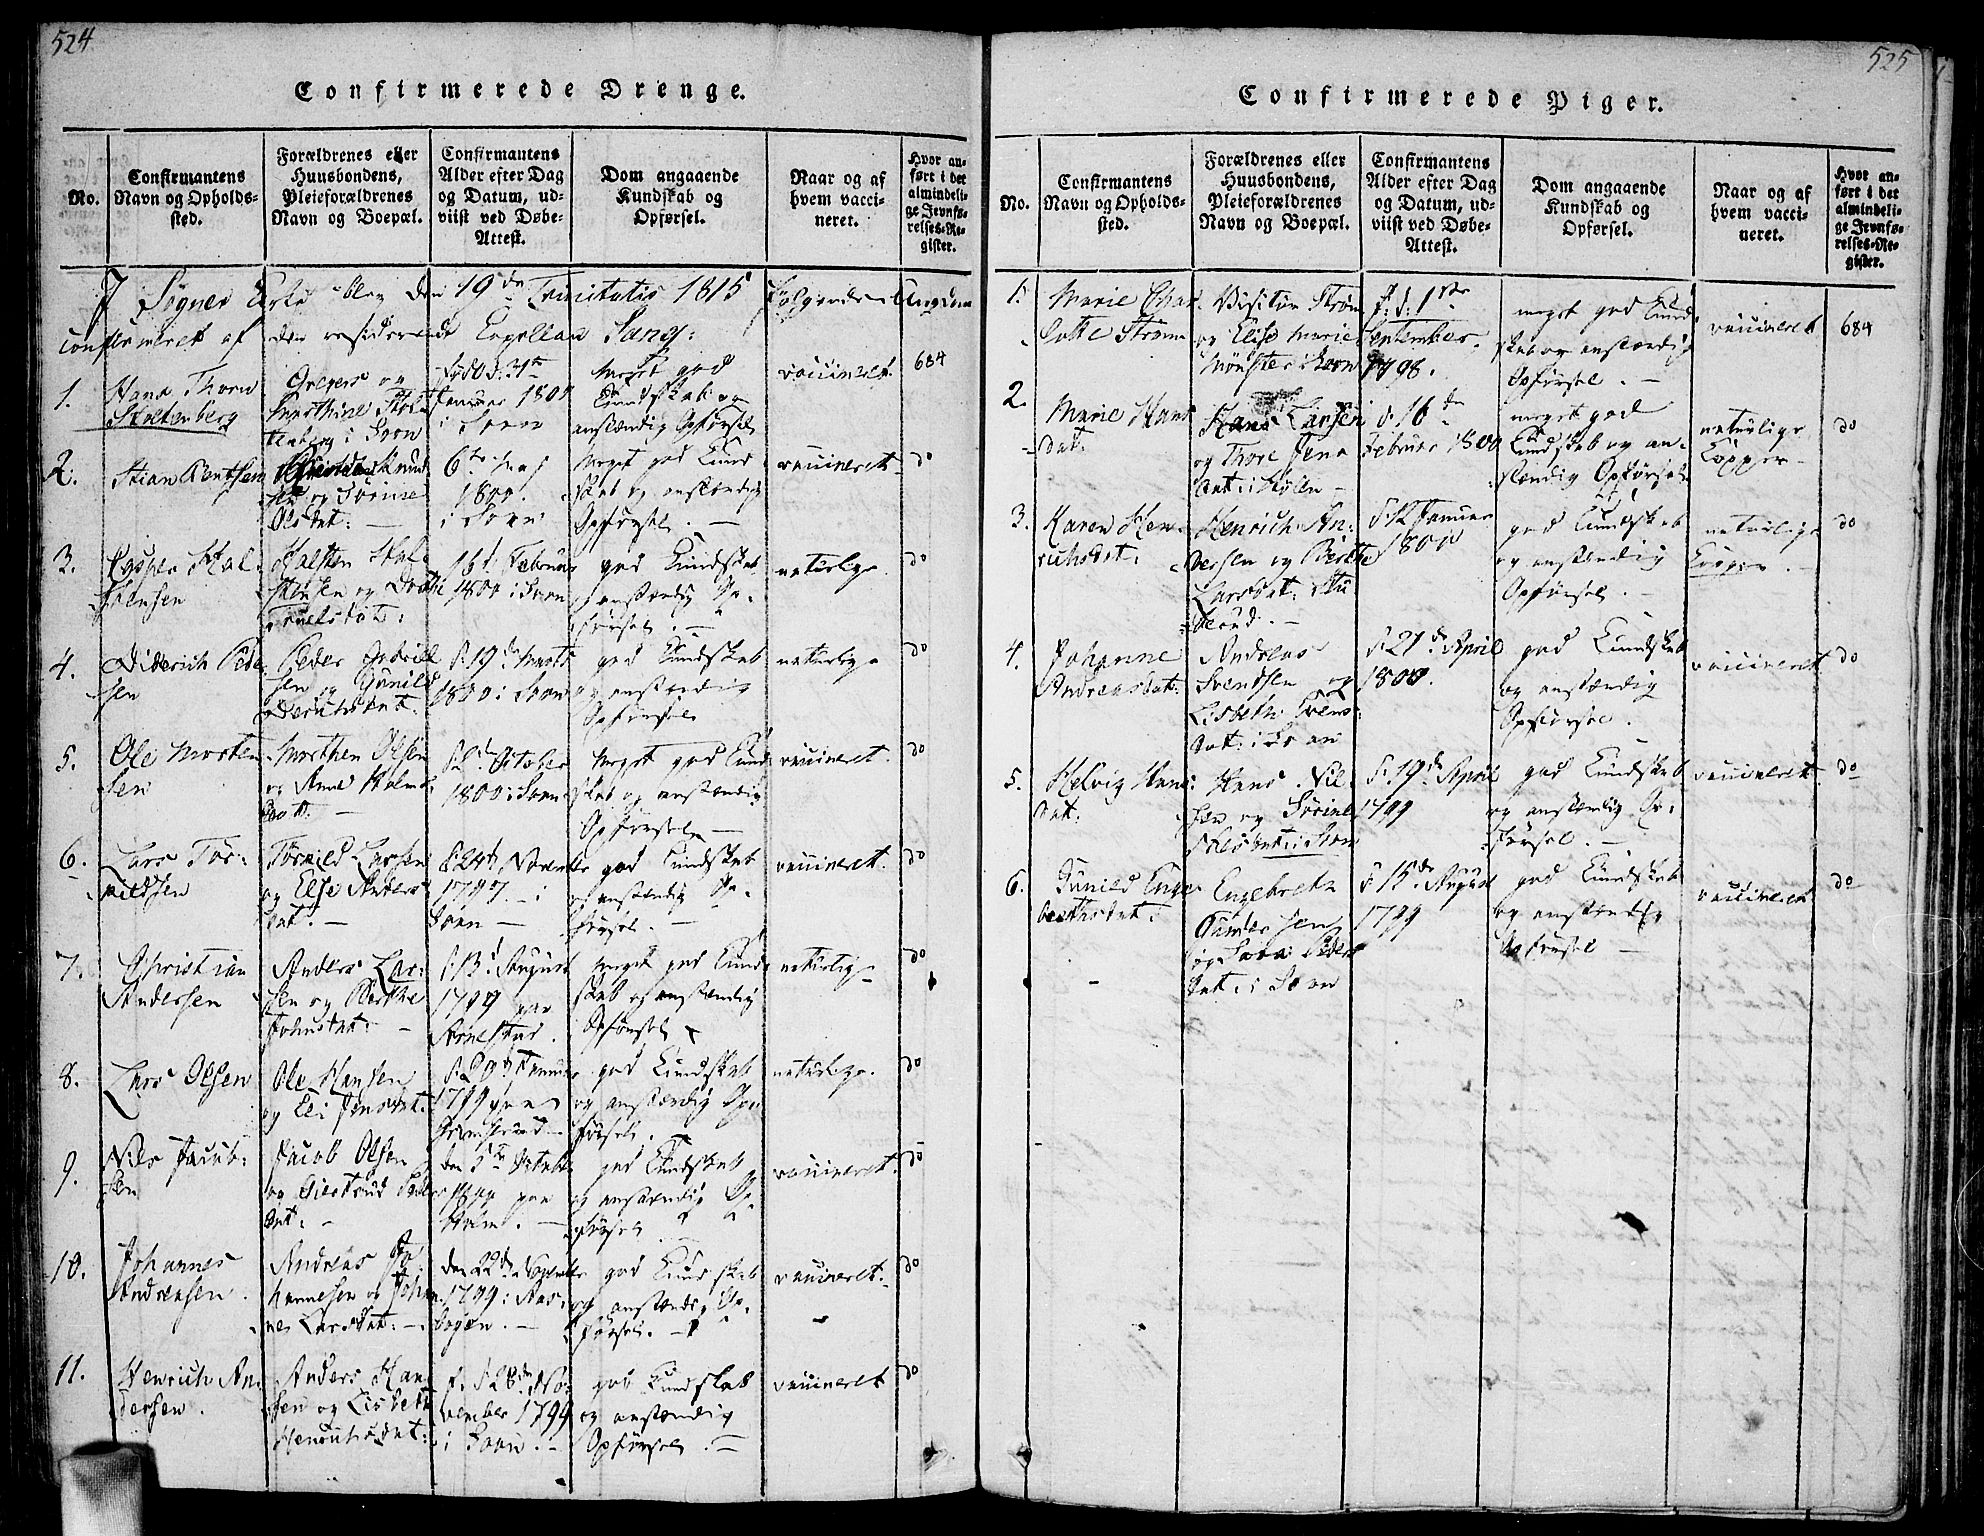 524
Confirmerede Drenge.
No.
Confirmantens
Navn og Opholds-
sted.
Forældrenes eller
Huusbondens,
Pleieforældrenes
Navn og Boepæl.
Confirmantens
Alder efter Dag
og Datum, ud-
viist ved Døbe-
Attest.
Dom angaaende
Kundskab og
Opførsel.
Naar og af
hvem vacci-
neret.
Hvor an-
ført i det
almindeli-
ge Jevnfø-
relses-Re-
gister.
I Sogner Kirke blev den 19de Trinitatis 1815 Følgende Ungdom
confirmeret af den residerende Capellan Lang:
1.
Hans Thorn
Stoltenberg
Gregers og
Marthine Stol-
tenberg i Soon
født d: 31te
Januar 1801
i Soon
meget god
Kundskab og
anstændig Opførsel
vaccineret.
684
2.
Stian Bentsen
og Sørine
Olsdat: —
6te Maj
1800.
i Soon
meget god Kund-
skab og anstændig
Opførsel. —
vaccineret
do
3.
Casper Hal-
stensen
Halsten Hal-
stensen og Dorthe
16d. Februar
1800 i Soon
god Kundskab
anstændig Op-
førsel. —
naturlige
do
4.
Diderich Peder-
sen
Peder Gabriel-
sen og Gunild
Diderichsdat:
d. 19de Marts
1800 i Soon
god Kundskab
og anstændig
Opførsel
naturlige
do
5.
Ole Morten-
sen
Morthen Olsen
og Anne Holms-
datt. —
d. 2d. October
1800 i Soon
meget god Kund-
skab og anstændig
Opførsel —
vaccineret.
do
6.
Lars Tor-
nildsen
Tornild Larsen
og Else Anders-
dat. —
d. 24d. Novembr
1799. — i
Soon —
god Kundskab
og anstændig Op-
førsel. —
vaccineret.
do
7.
Christian
Andersen
Anders Lar-
sen og Berthe
Johnsdat: —
d. 13d. August
1799 paa
meget god Kund-
skab og anstændig
Opførsel
naturlige
do
8.
Lars Olsen
Ole Hansen
og Eli Jensdat:
Januar
1799 paa
god Kundskab
og anstændig Op-
førsel.
naturlige.
do
9.
Nils Jacob-
sen
Jacob Olsen
og Giertrud Peder-
dat: —
den 5te October
1799 paa
Holm. —
god Kundskab
og anstændig Op-
førsel
vaccineret.
do
10.
Johannes
Andreasen.
Andreas Jo-
hannesen og Johan-
ne Larsdat: —
den 22de Novembr
1799 i
god Kundskab
og anstændig Op-
førsel. —
vaccineret.
do
11.
Henrich An-
dersen.
Anders Han-
sen og Lisbeth
Henrichsdat:
f. d 28de No-
vember 1799
i Soon. —
god Kundskab
og anstændig
Opførsel. —
vaccineret
do
525
Confirmerede Piger.
No.
Confirmantens
Navn og Opholds-
sted.
Forældrenes eller
Huusbondens,
Pleieforældrenes
Navn og Boepæl.
Confirmantens
Alder efter Dag
og Datum, ud-
viist ved Døbe-
Attest.
Dom angaaende
Kundskab og
Opførsel.
Naar og af
hvem vacci-
neret.
Hvor an-
ført i det
almindeli-
ge Jevnfø-
relses-Re-
gister.
1.
Marie Char-
lotte Strøm
Visiteur Strøm
og Elise Marie
Mønster i Soon
f: d: 1ste
September
1798.
meget god Kund-
skab og anstændig
Opførsel. —
vaccineret
684
2.
Marie Hans-
dat:
Hans Larsen
og Thore Jens-
dat: i Hølen —
d. 16de
Februar 1800
meget god
Kundskab og an-
stændig Opførsel
naturlige
Kopper —
do
3.
Karen Hen-
richsdat:
Henrich An-
dersen og Berthe
Larsdat: Stu-
derud. —
d. 12 Januar
1800
god Kundskab
og anstændig
Opførsel. —
naturlige
Kopper. —
do
4.
Johanne
Andreasdat:
Andreas
Svendsen og
Lisbeth Svens-
dat: i Soon
d. 21de April
1800.
god Kundskab
og anstændig
Opførsel.
vaccineret
do
5.
Helvig Hans-
dat:
Hans Nil-
sen og Sørine
Nilsdat: i Soon
d. 19de April
1799
god Kundskab
og anstændig Op-
førsel. —
vaccineret
do
6.
Gunild Enge-
brethsdat:
Engebreth
Gundersen
og Sara Peders-
dat: i Soon
d. 15de August
1799
god Kundskab
og anstændig
Opførsel —
vaccineret
do